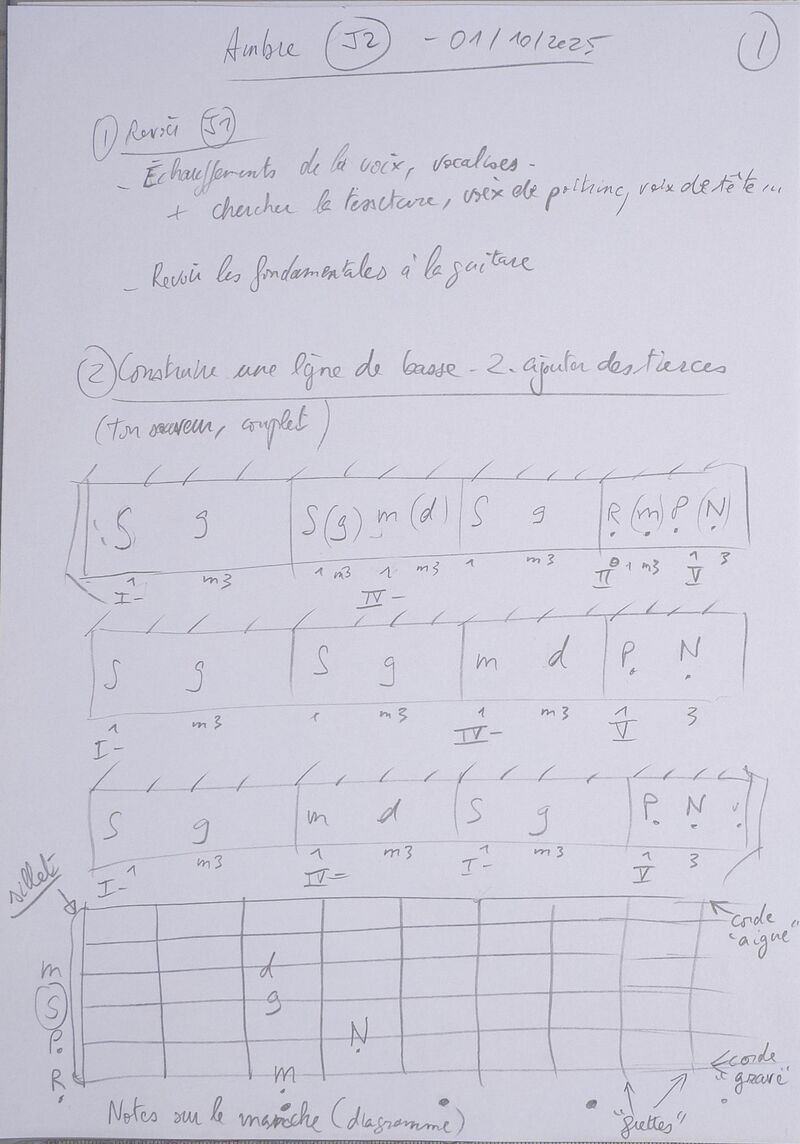 Ambre J2 - 01/10/2025
1
1 Revoir J1
- Échauffements de la voix, vocalises -
+ chercher la tessiture, voix de poitrine, voix de tête ...
- Revoir les fondamentales à la guitare
2 Construire une ligne de basse - 2. ajouter des tierces
(ton sauveur, couplet)
S g S (g) m (d) S g R (m) P (N)
1 m3 1 m3 1 m3 1 m3 II° 1 m3 1 3
I- IV- V
S g S g m d P N
1 m3 1 m3 1 m3 1 3
I- IV- V
S g m d S g P N
I-1 m3 1 m3 1 m3 1 3
IV- I- V
sillet
corde "aiguë"
m d
S g
P N
R m
corde "grave"
Notes sur le manche (diagramme)
"frettes"